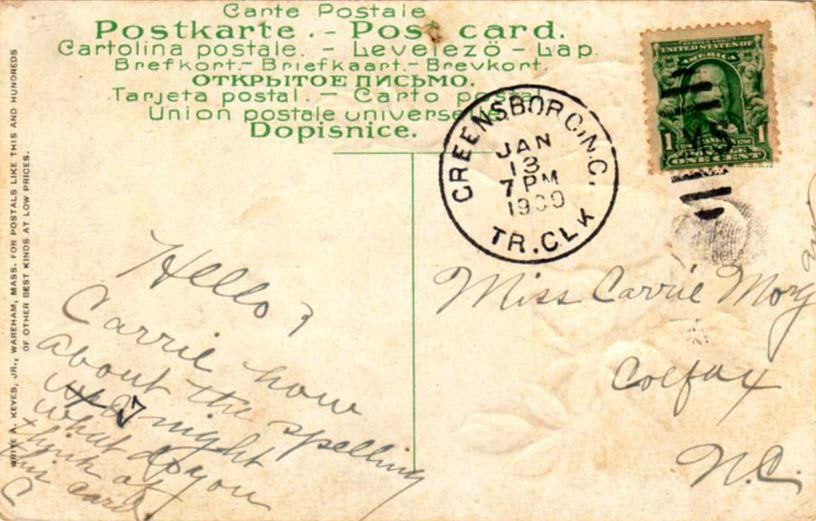 Carte Postale
Postkarte. - Post card.
Cartolina postale. - Levelezö - Lap.
Brefkort.- Briefkaart.- Brevkort.
ОТКРЫТОЕ ПИСЬМО.
Tarjeta postal. - Carto postal
Union postale universe
Dopisnice.
WRITE A. KEYES, JR., WAREHAM, MASS. FOR POSTALS LIKE THIS AND HUNDREDS
OF OTHER BEST KINDS AT LOW PRICES.
GREENSBORO, N.C.
JAN
13
7 PM
1909
TR. CLK
UNITED STATES OF
AMERICA
1 1
ONE CENT
Miss Carrie Morg
an
Colfax
N.C.
Hello?
Carrie how
about the spelling
night
what do you
think of
this card
C